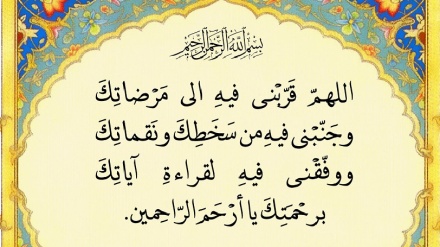 بسم الله الرحمن الرحیم
اللهمّ قَرّبْنی فیهِ الی مَرْضاتِكَ
وجَنّبْنی فیهِ من سَخَطِكَ ونَقماتِكَ
ووفّقْنی فیهِ لقراءةِ آیاتِكَ
برحْمَتِكَ یا أرْحَمَ الرّاحِمین.